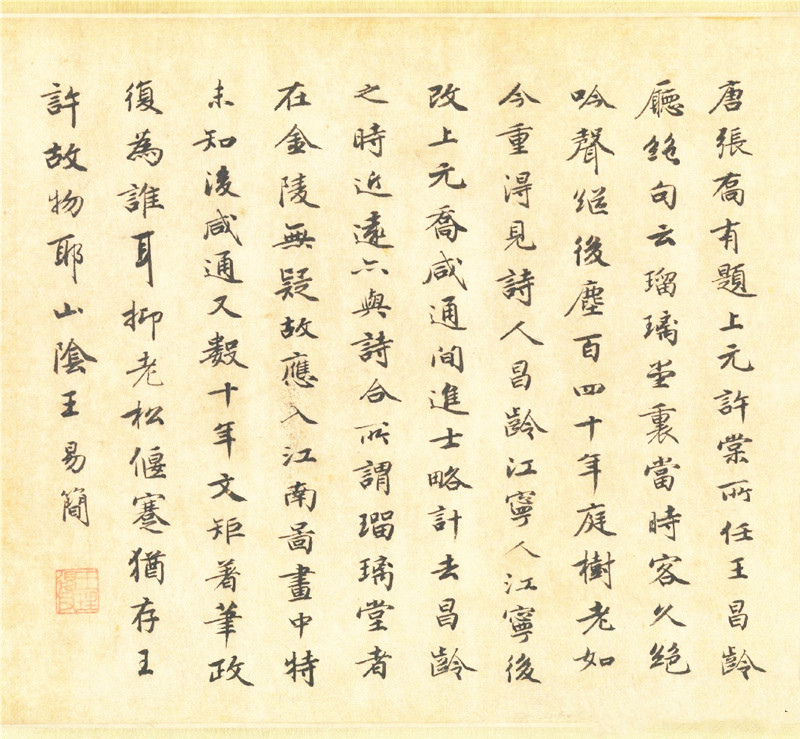 唐張喬有題上元許棠所任王昌齡
廳絕句云瑠璃堂裏當時客久絕
吟聲繼後塵百四十年庭樹老如
今重得見詩人昌齡江寧人江寧後
改上元喬咸通間進士略計去昌齡
之時近遠亦與詩合所謂瑠璃堂者
在金陵無疑故應入江南圖畫中特
未知後咸通又數十年文矩著筆政
復為誰耳抑老松偃蹇猶存王
許故物耶山陰王易簡